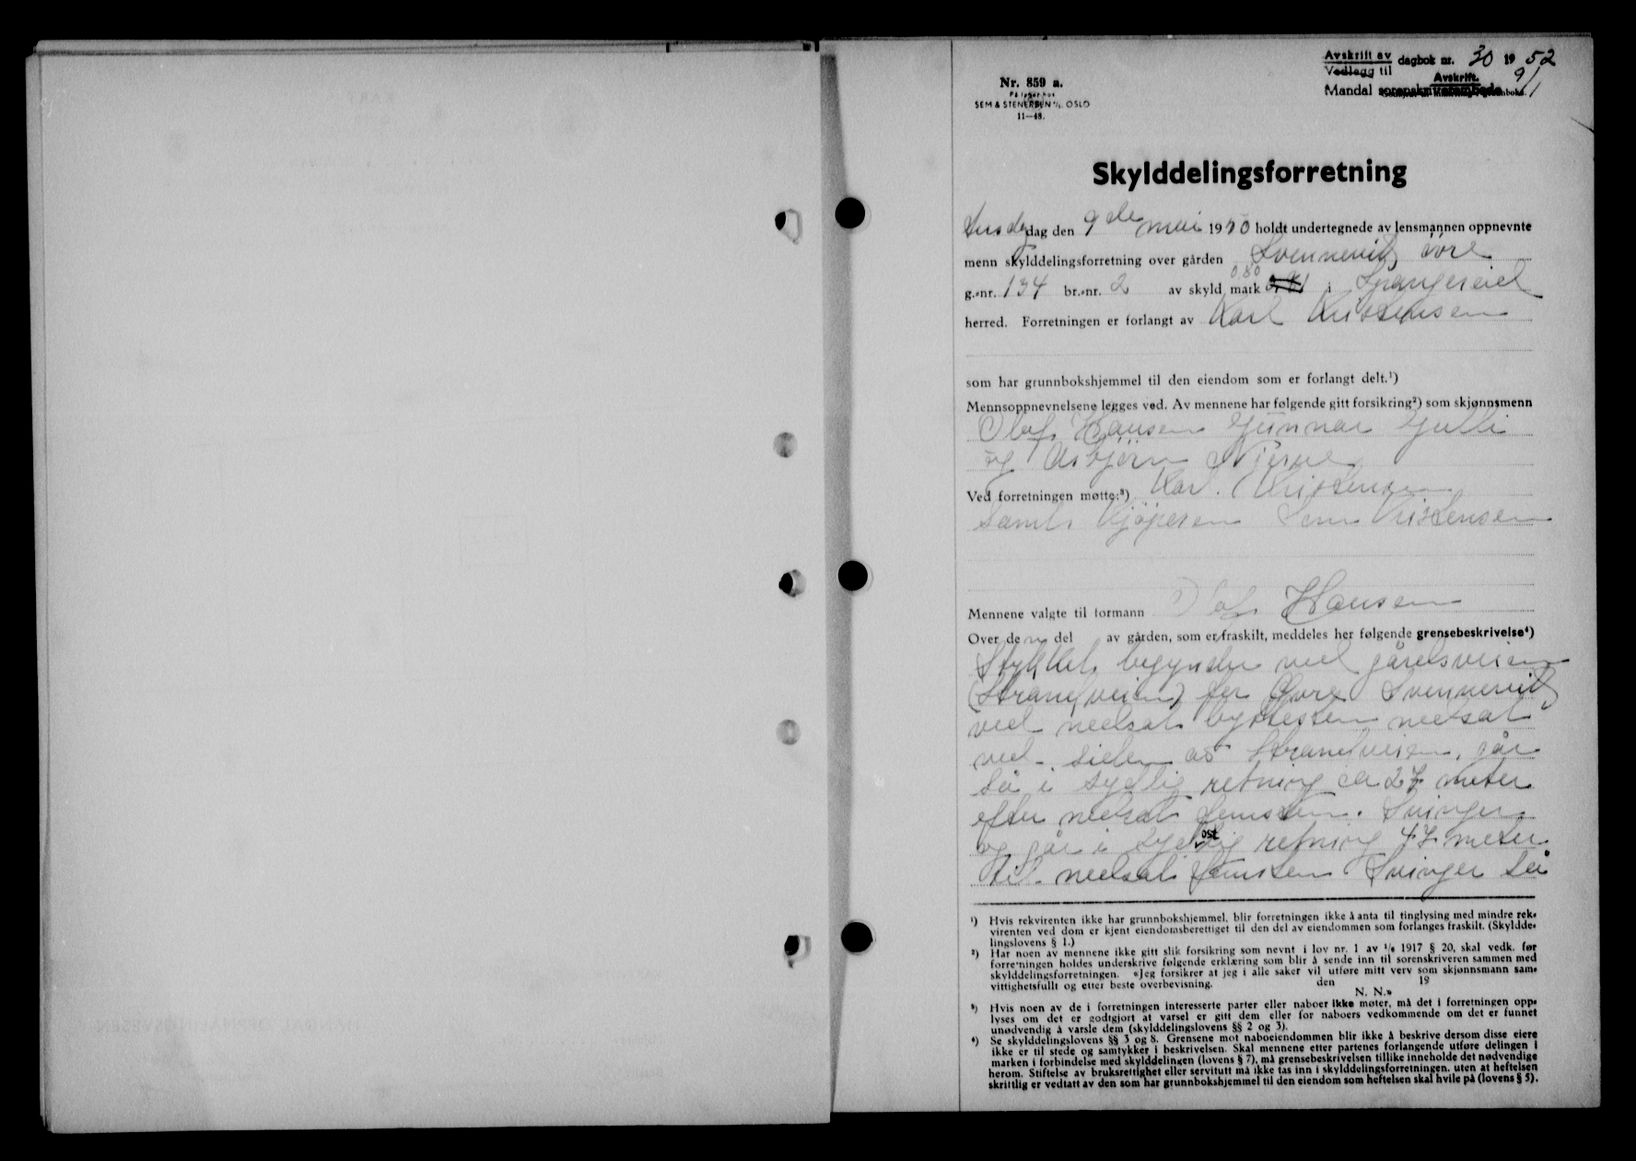 Avskrift av dagbok nr. 30 19 52
Vedlagg til
Avskrift. 9/1
Mandal sorenskriverembede
Nr. 859 a.
På lager hos
SEM & STENERSEN A/S, OSLO
11—48.
Skylddelingsforretning
dag den 9de mai 1950 holdt undertegnede av lensmannen oppnevnte
menn skylddelingsforretning over gården Svennevik øvre
0.80
g.-nr. 134 br.-nr. 2 av skyld mark i Spangereid
herred. Forretningen er forlangt av Karl Kristensen
som har grunnbokshjemmel til den eiendom som er forlangt delt.¹)
Mennsoppnevnelsene legges ved. Av mennene har følgende gitt forsikring²) som skjønnsmenn
Olaf Hansen Gunnar
og Asbjørn
Ved forretningen møtte:³) Karl Kristensen
samt kjøperen Kristensen
Mennene valgte til formann Olaf Hansen
Over den del av gården, som er fraskilt, meddeles her følgende grensebeskrivelse⁴)
Stykket begynder ved gårdsveien
(Strandveien) for Øvre Svennevik
ved nedsat byttesten nedsat
ved siden av Strandveien, går
så i sydlig retning ca 27 meter
efter nedsat stensten. Svinger
og går i sydostlig retning 47 meter
til nedsat stensten Svinger så
¹) Hvis rekvirenten ikke har grunnbokshjemmel, blir forretningen ikke å anta til tinglysing med mindre rek-
virenten ved dom er kjent eiendomsberettiget til den del av eiendommen som forlanges fraskilt. (Skyldde-
lingslovens § 1.)
²) Har noen av mennene ikke gitt slik forsikring som nevnt i lov nr. 1 av 1/6 1917 § 20, skal vedk. før
forretningen holdes underskrive følgende erklæring som blir å sende inn til sorenskriveren sammen med
skylddelingsforretningen. «Jeg forsikrer at jeg i alle saker vil utføre mitt verv som skjønnsmann sam-
vittighetsfullt og etter beste overbevisning. den 19
N. N.»
³) Hvis noen av de i forretningen interesserte parter eller naboer ikke møter, må det i forretningen opp-
lyses om det er godtgjort at varsel er gitt dem eller for naboers vedkommende om det er funnet
unødvendig å varsle dem (skylddelingslovens §§ 2 og 3).
⁴) Se skylddelingslovens §§ 3 og 8. Grensene mot naboeiendommen blir ikke å beskrive dersom disse eiere
ikke er til stede og samtykker i beskrivelsen. Skal mennene etter partenes forlangende utføre delingen i
marken i forbindelse med skylddelingen (lovens § 7), må grensebeskrivelsen tillike inneholde det nødvendige
herom. Stiftelse av bruksrettighet eller servitutt må ikke tas inn i skylddelingsforretningen, uten at heftelsen
skriftlig er vedtatt av den som har grunnbokshjemmel til den eiendom som heftelsen skal hvile på (lovens § 5).